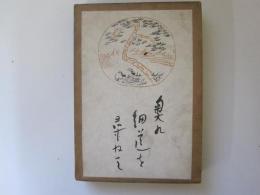 奥の
細道を
尋ねて